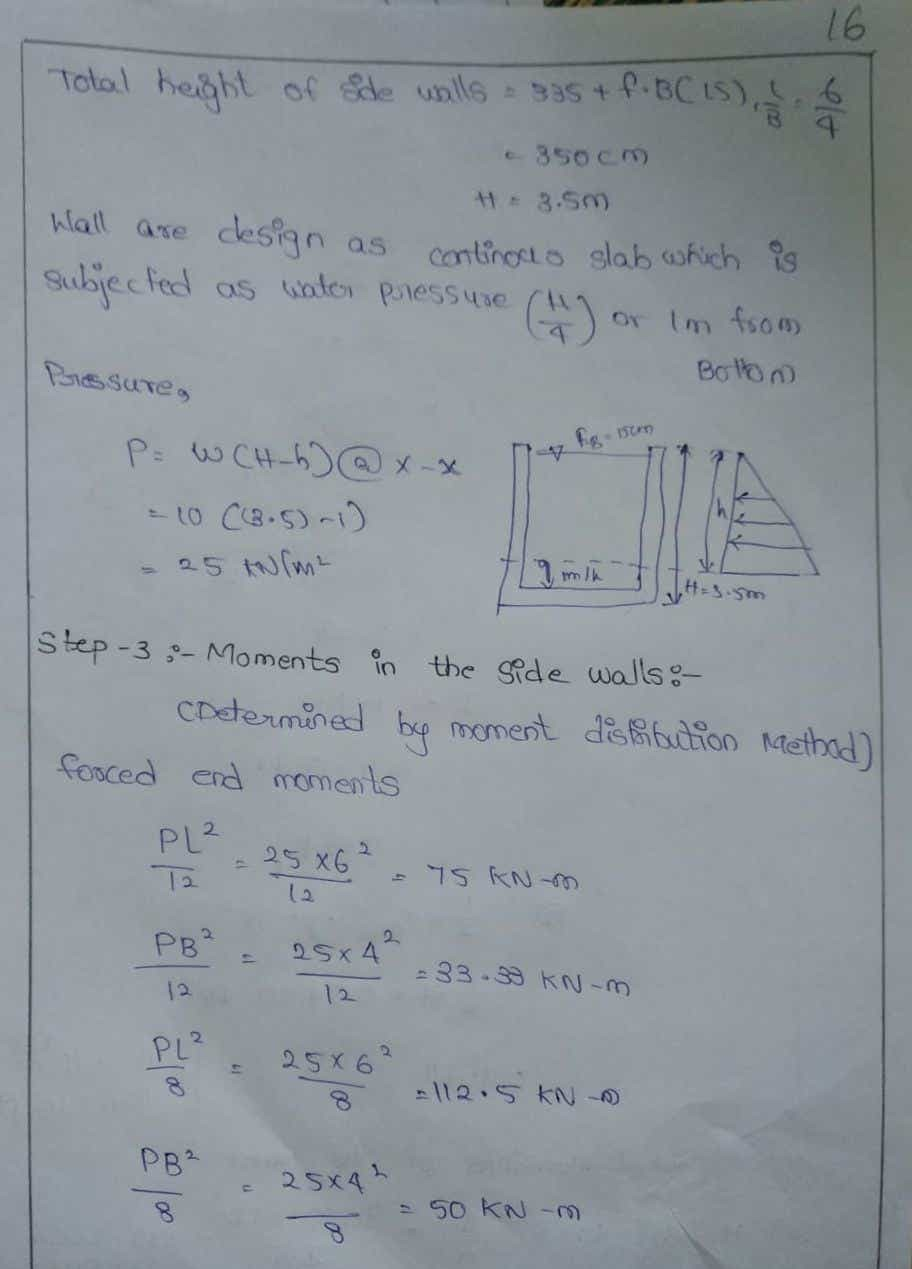 16
Total height of side walls = 335 + f.B(15), L/B = 6/4
= 350cm
H = 3.5m
Wall are design as continous slab which is
subjected as water pressure (H/4) or 1m from
Bottom
Pressure,
P = W(H-h) @ x-x
= 10 ((3.5)-1)
= 25 KN/m²
fB = 15cm
h
1m/h
H = 3.5m
Step-3 :- Moments in the side walls :-
(Determined by moment distribution Method)
forced end moments
PL²/12 = 25×6²/12 = 75 KN-m
PB²/12 = 25×4²/12 = 33.33 KN-m
PL²/8 = 25×6²/8 = 112.5 KN-m
PB²/8 = 25×4²/8 = 50 KN-m